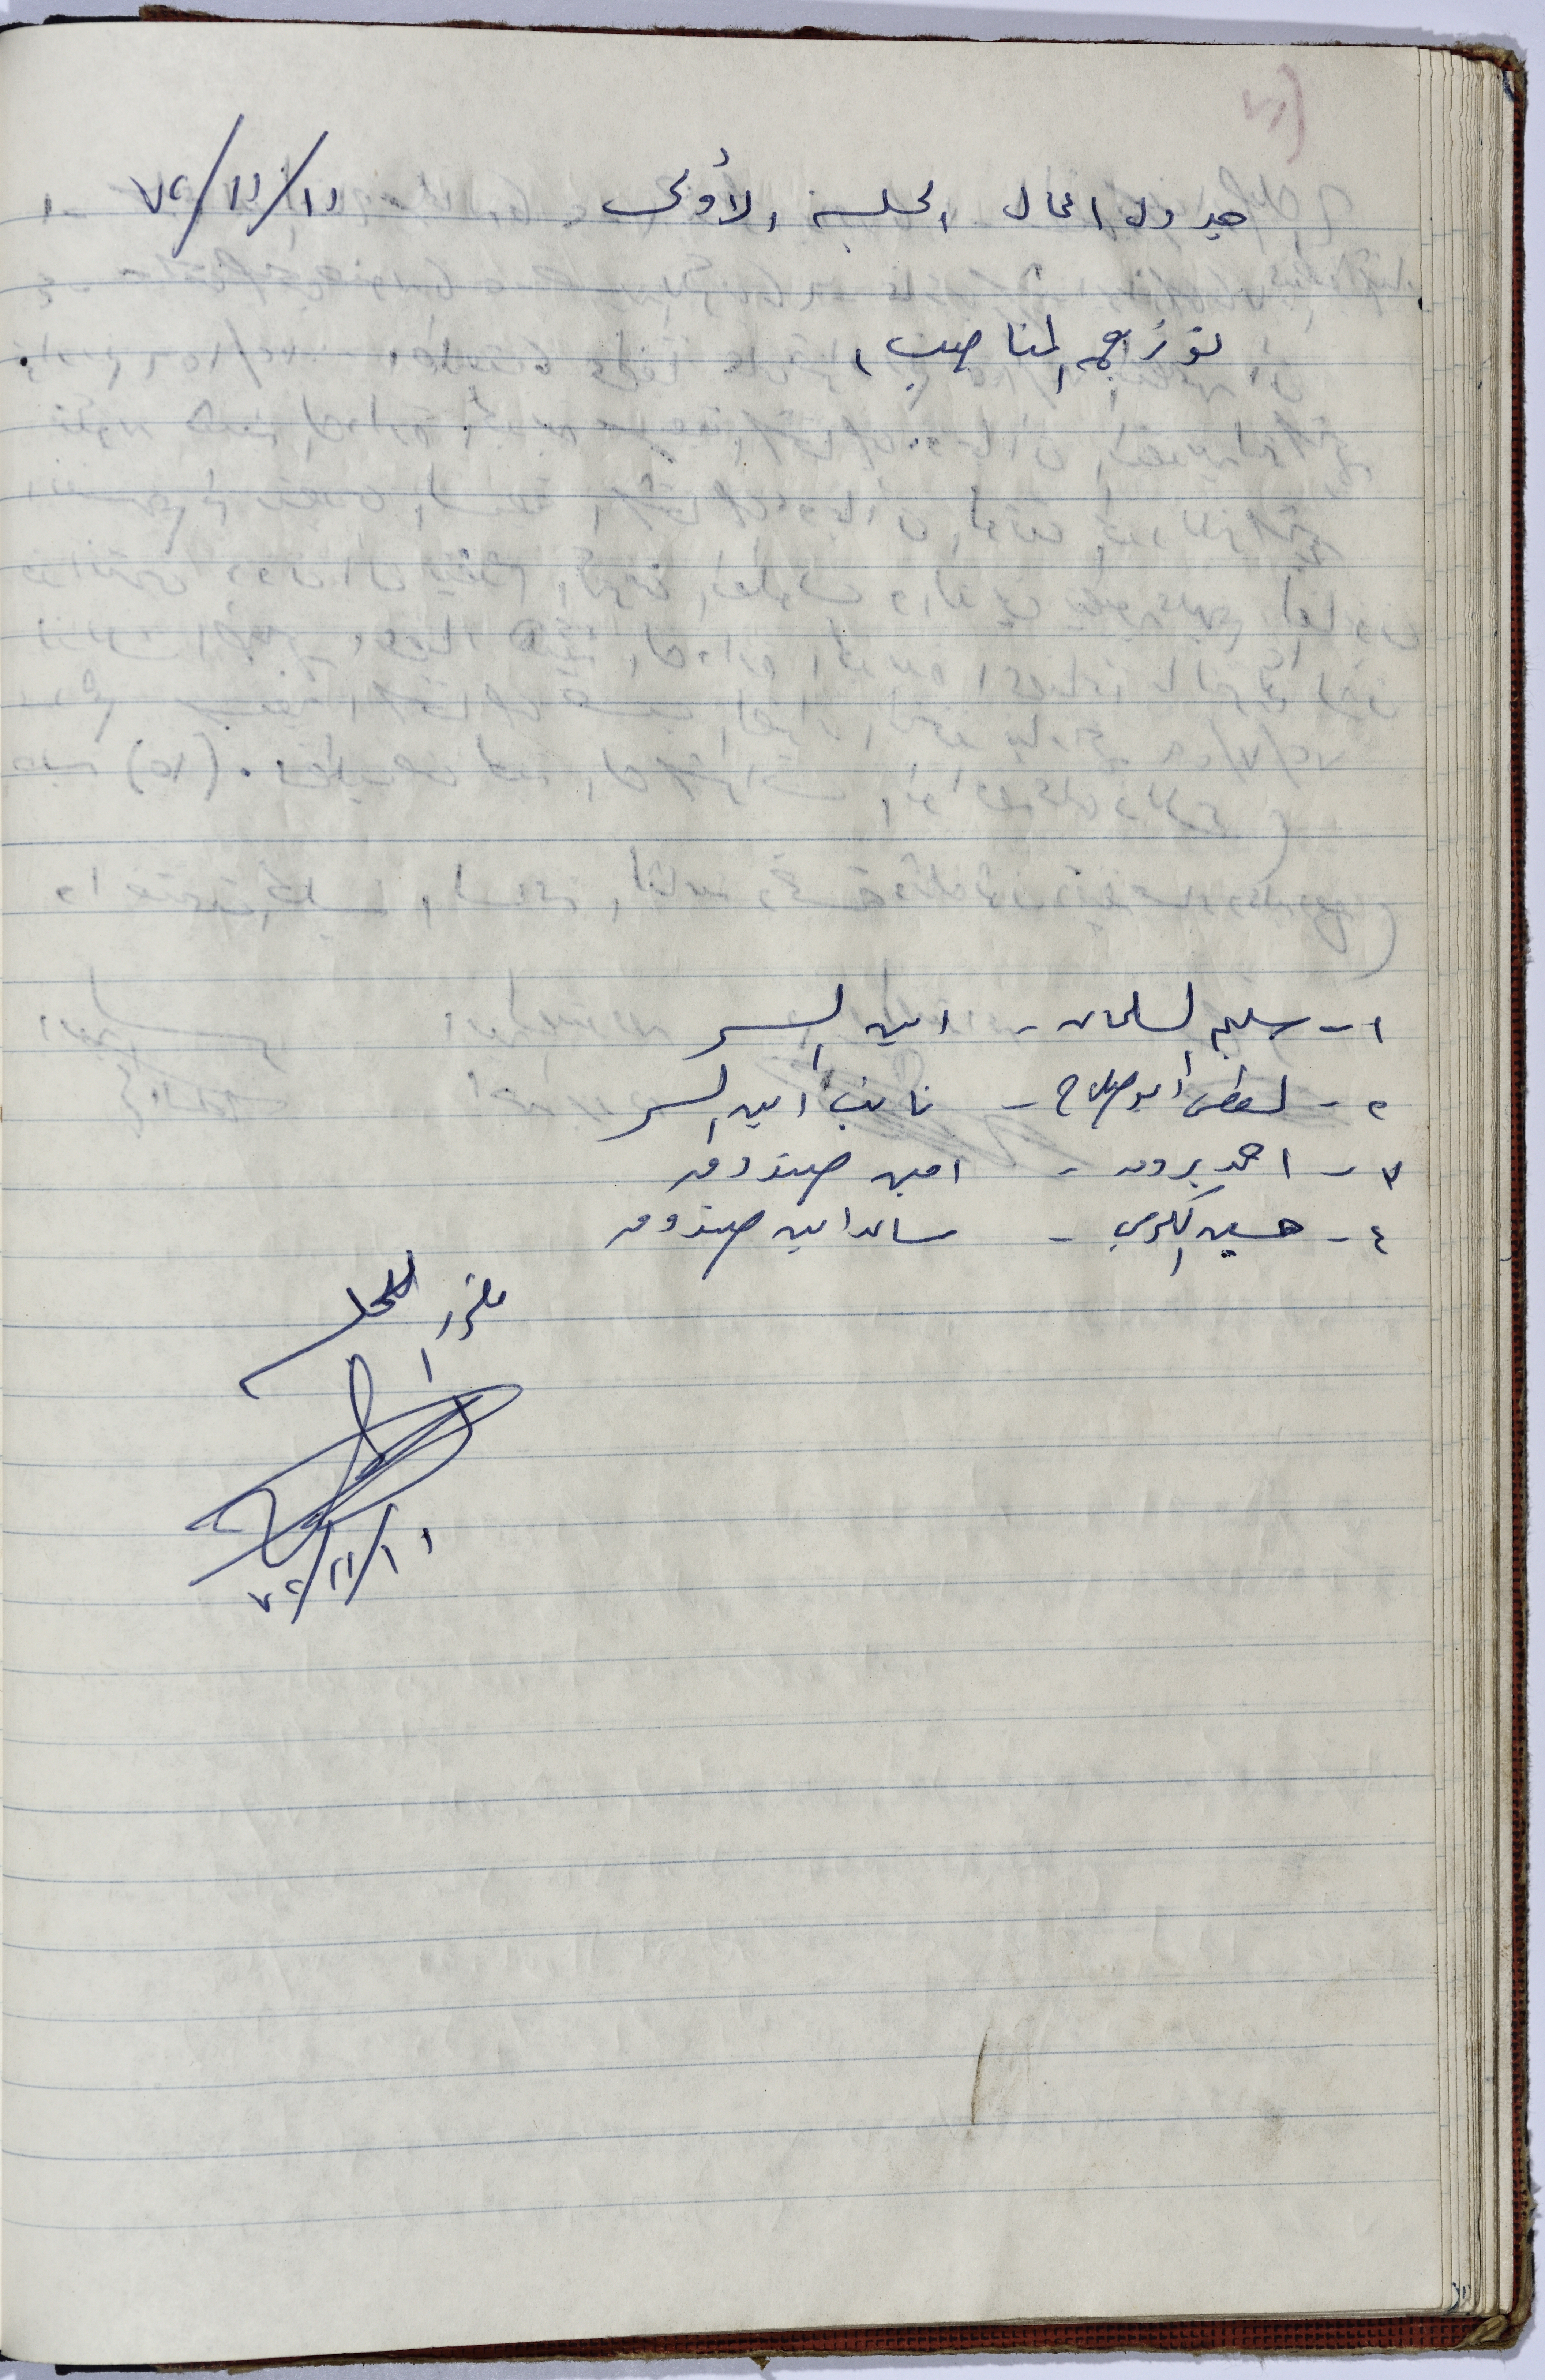 جدول اعمال الجلسة الأولى ١١/١١/٧٢
توزيع المناصب
١- سليم السلمان - امين السر
٢- لطفي ابو صلاح - نائب امين السر
٣- احمد بدوي - امين صندوق
٤- حسين الكرمي - مساعد امين صندوق
مقرر المجلس
١١/١١/٧٢